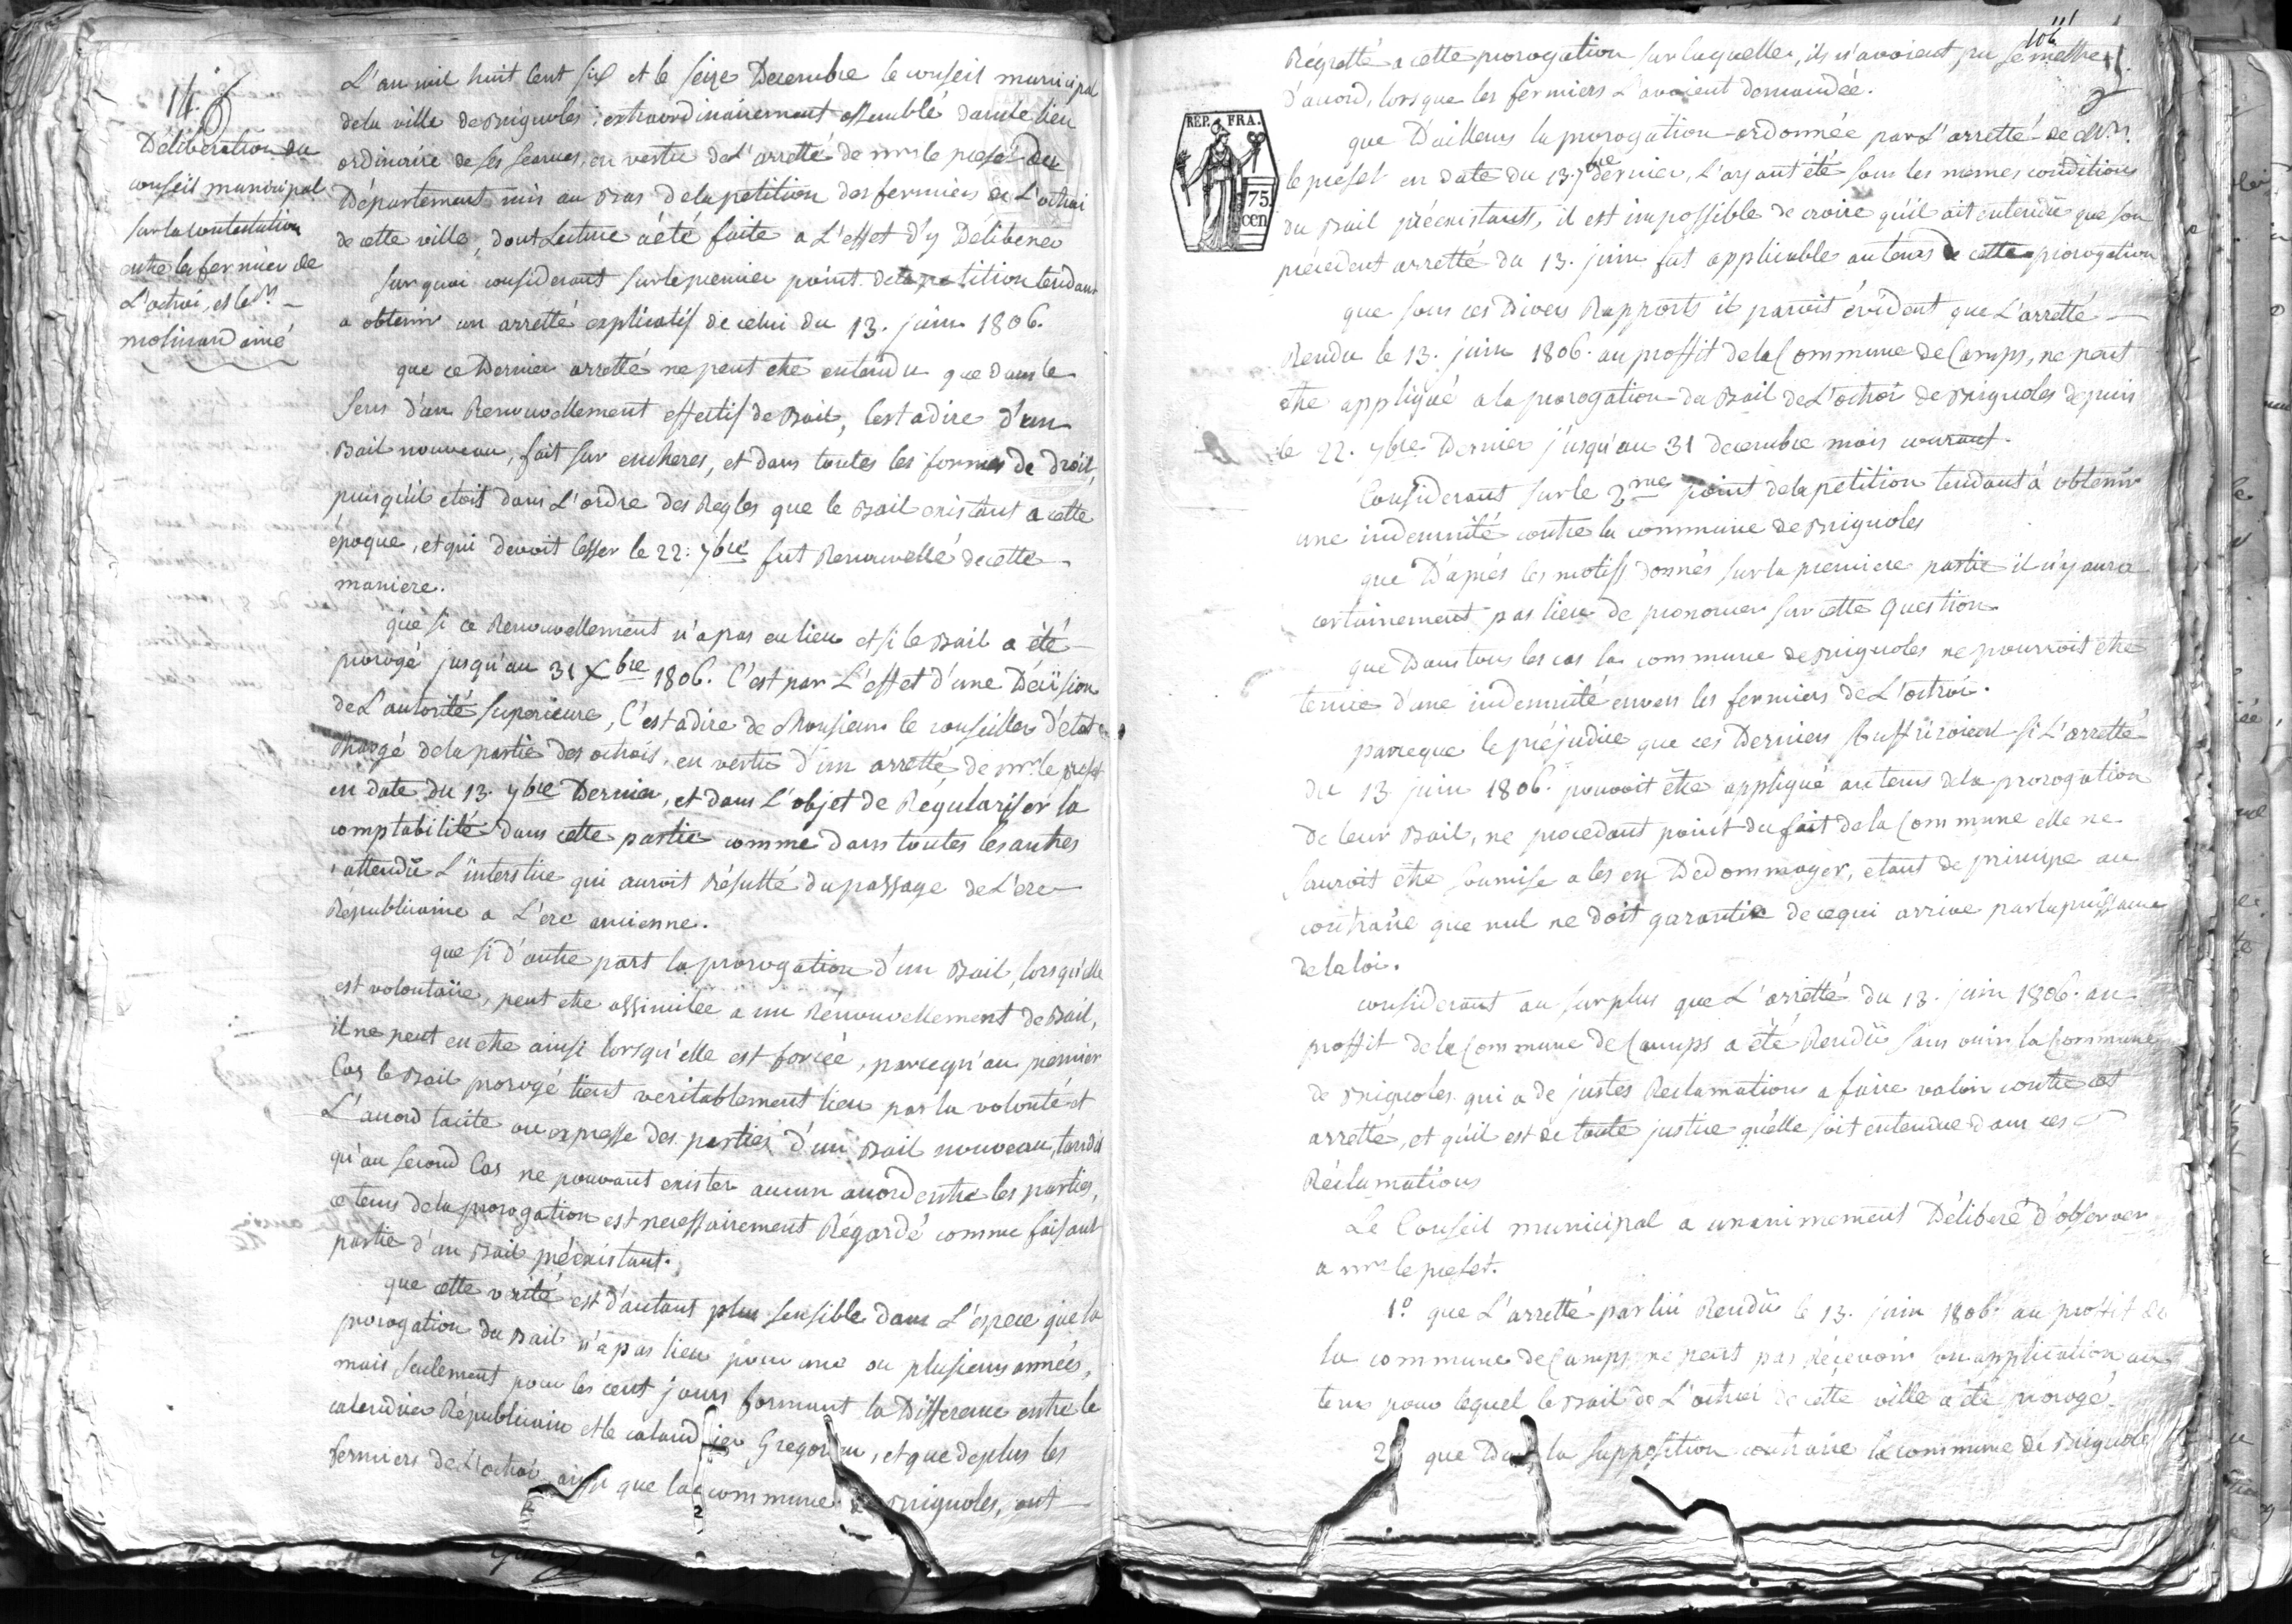 14.
Délibération du
conseil municipal
sur la contestation
entre le fermier de
L'octroi, et le Sr
molinard ainé
L'an mil huit cent six et le seize Decembre le conseil municipal
de la ville de Brignoles extraordinairement assemblé dans le lieu
ordinaire de ses seances, en vertu de L'arretté de mr le prefet du
Département mis au Bas de la petition des fermiers de L'octroi
de cette ville, dont Lecture a été faite a L'effet d'y Deliberer
Sur quoi considerant sur le premier point de la petition tendant
a obtenir un arretté explicatif de celui du 13. juin 1806.
que ce Dernier arretté ne peut etre entendu que dans le
Sens d'un Renouvellement effectif de Bail, C'est a dire d'un
Bail nouveau, fait sur encheres, et dans toutes les formes de droit,
puisqu'il etoit dans L'ordre des Regles que le Bail existant a cette
époque, et qui devoit Cesser le 22. 7bre fut Renouvellé de cette
maniere.
que si ce Renouvellement n'a pas eu lieu et si le Bail a été
prorogé jusqu'au 31 Xbre 1806. C'est par L'effet d'une Décision
de L'autorité Superieure, C'est a dire de Monsieur le conseiller d'état
Chargé de la partie des octrois, en vertu d'un arretté de mr le prefet
en date du 13. 7bre Dernier, et dans L'objet de Régulariser la
comptabilité dans cette partie comme dans toutes les autres
attendu L'interstice qui auroit Résulté du passage de L'ere
Républicaine a L'ere ancienne.
que si d'autre part la prorogation d'un Bail, lorsqu'elle
est volontaire, peut etre assimilée a un Rénouvellement de Bail,
il ne peut en etre ainsi lorsqu'elle est forcée, parcequ'au premier
Cas le Bail prorogé tient veritablement lieu par la volonté et
L'accord tacite ou expresse des parties d'un Bail nouveau, tandis
qu'au Second Cas ne pouvant exister aucun accord entre les parties,
ce tems de la prorogation est necessairement Régardé comme faisant
partie d'un Bail préexistant.
que cette verité est d'autant plus sensible dans L'espece que la
prorogation du Bail n'a pas lieu pour une ou plusieurs années,
mais seulement pour les cent jours formant la Difference entre le
calendrier Républicain et le calendrier Gregorien, et que de plus les
fermiers de L'octroi ainsi que la commune de Brignoles, ont
106
REP. FRA.
75
cen
Régretté a cette prorogation sur laquelle, ils n'avoient pu se mettre
d'accord, lorsque les fermiers L'avoient demandée.
que D'ailleurs la prorogation ordonnée par L'arretté de Mr
le prefet en date du 13. 7bre dernier, L'ayant été sous les memes conditions
du Bail préexistant, il est impossible de croire qu'il ait entendu que son
précedent arretté du 13. juin fut applicable au tems de cette prorogation
que sous ces Divers Rapports il paroit évident que L'arretté
Rendu le 13. juin 1806. au proffit de la Commune de Camps, ne peut
etre appliqué a la prorogation du Bail de L'octroi de Brignoles depuis
le 22. 7bre Dernier jusqu'au 31 decembre mois courant.
Considerant sur le 2me point de la petition tendant à obtenir
une indemnité contre la commune de Brignoles
que D'après les motifs donnés sur la premiere partie il n'y aura
certainement pas lieu de prononcer sur cette Question
que Dans tous les cas la commune de Brignoles ne pourroit etre
tenue d'une indemnité envers les fermiers de L'octroi.
parceque le préjudice que ces Derniers Souffriroient si L'arretté
du 13 juin 1806. pouvoit être appliqué au tems de la prorogation
de leur Bail, ne procedant point du fait de la Commune elle ne
Sauroit etre soumise a les en Dédommager, etant de principe au
contraire que nul ne doit garantir de ce qui arrive par la puissance
de la loi.
considerant au surplus que L'arretté du 13. juin 1806. au
proffit de la Commune de Camps a été Rendu sans ouir la Commune
de Brignoles qui a de justes Reclamations a faire valoir contre cet
arretté, et qu'il est de toute justice qu'elle soit entendue dans ces
Réclamations
Le Conseil municipal a unanimement Délibéré d'observer
a mr le prefet.
1º que L'arretté par lui Rendu le 13. juin 1806. au proffit de
la commune de Camps ne peut pas récevoir son application au
tems pour lequel le Bail de L'octroi de cette ville a été prorogé.
2º que Dans la supposition contraire la commune de Brignoles